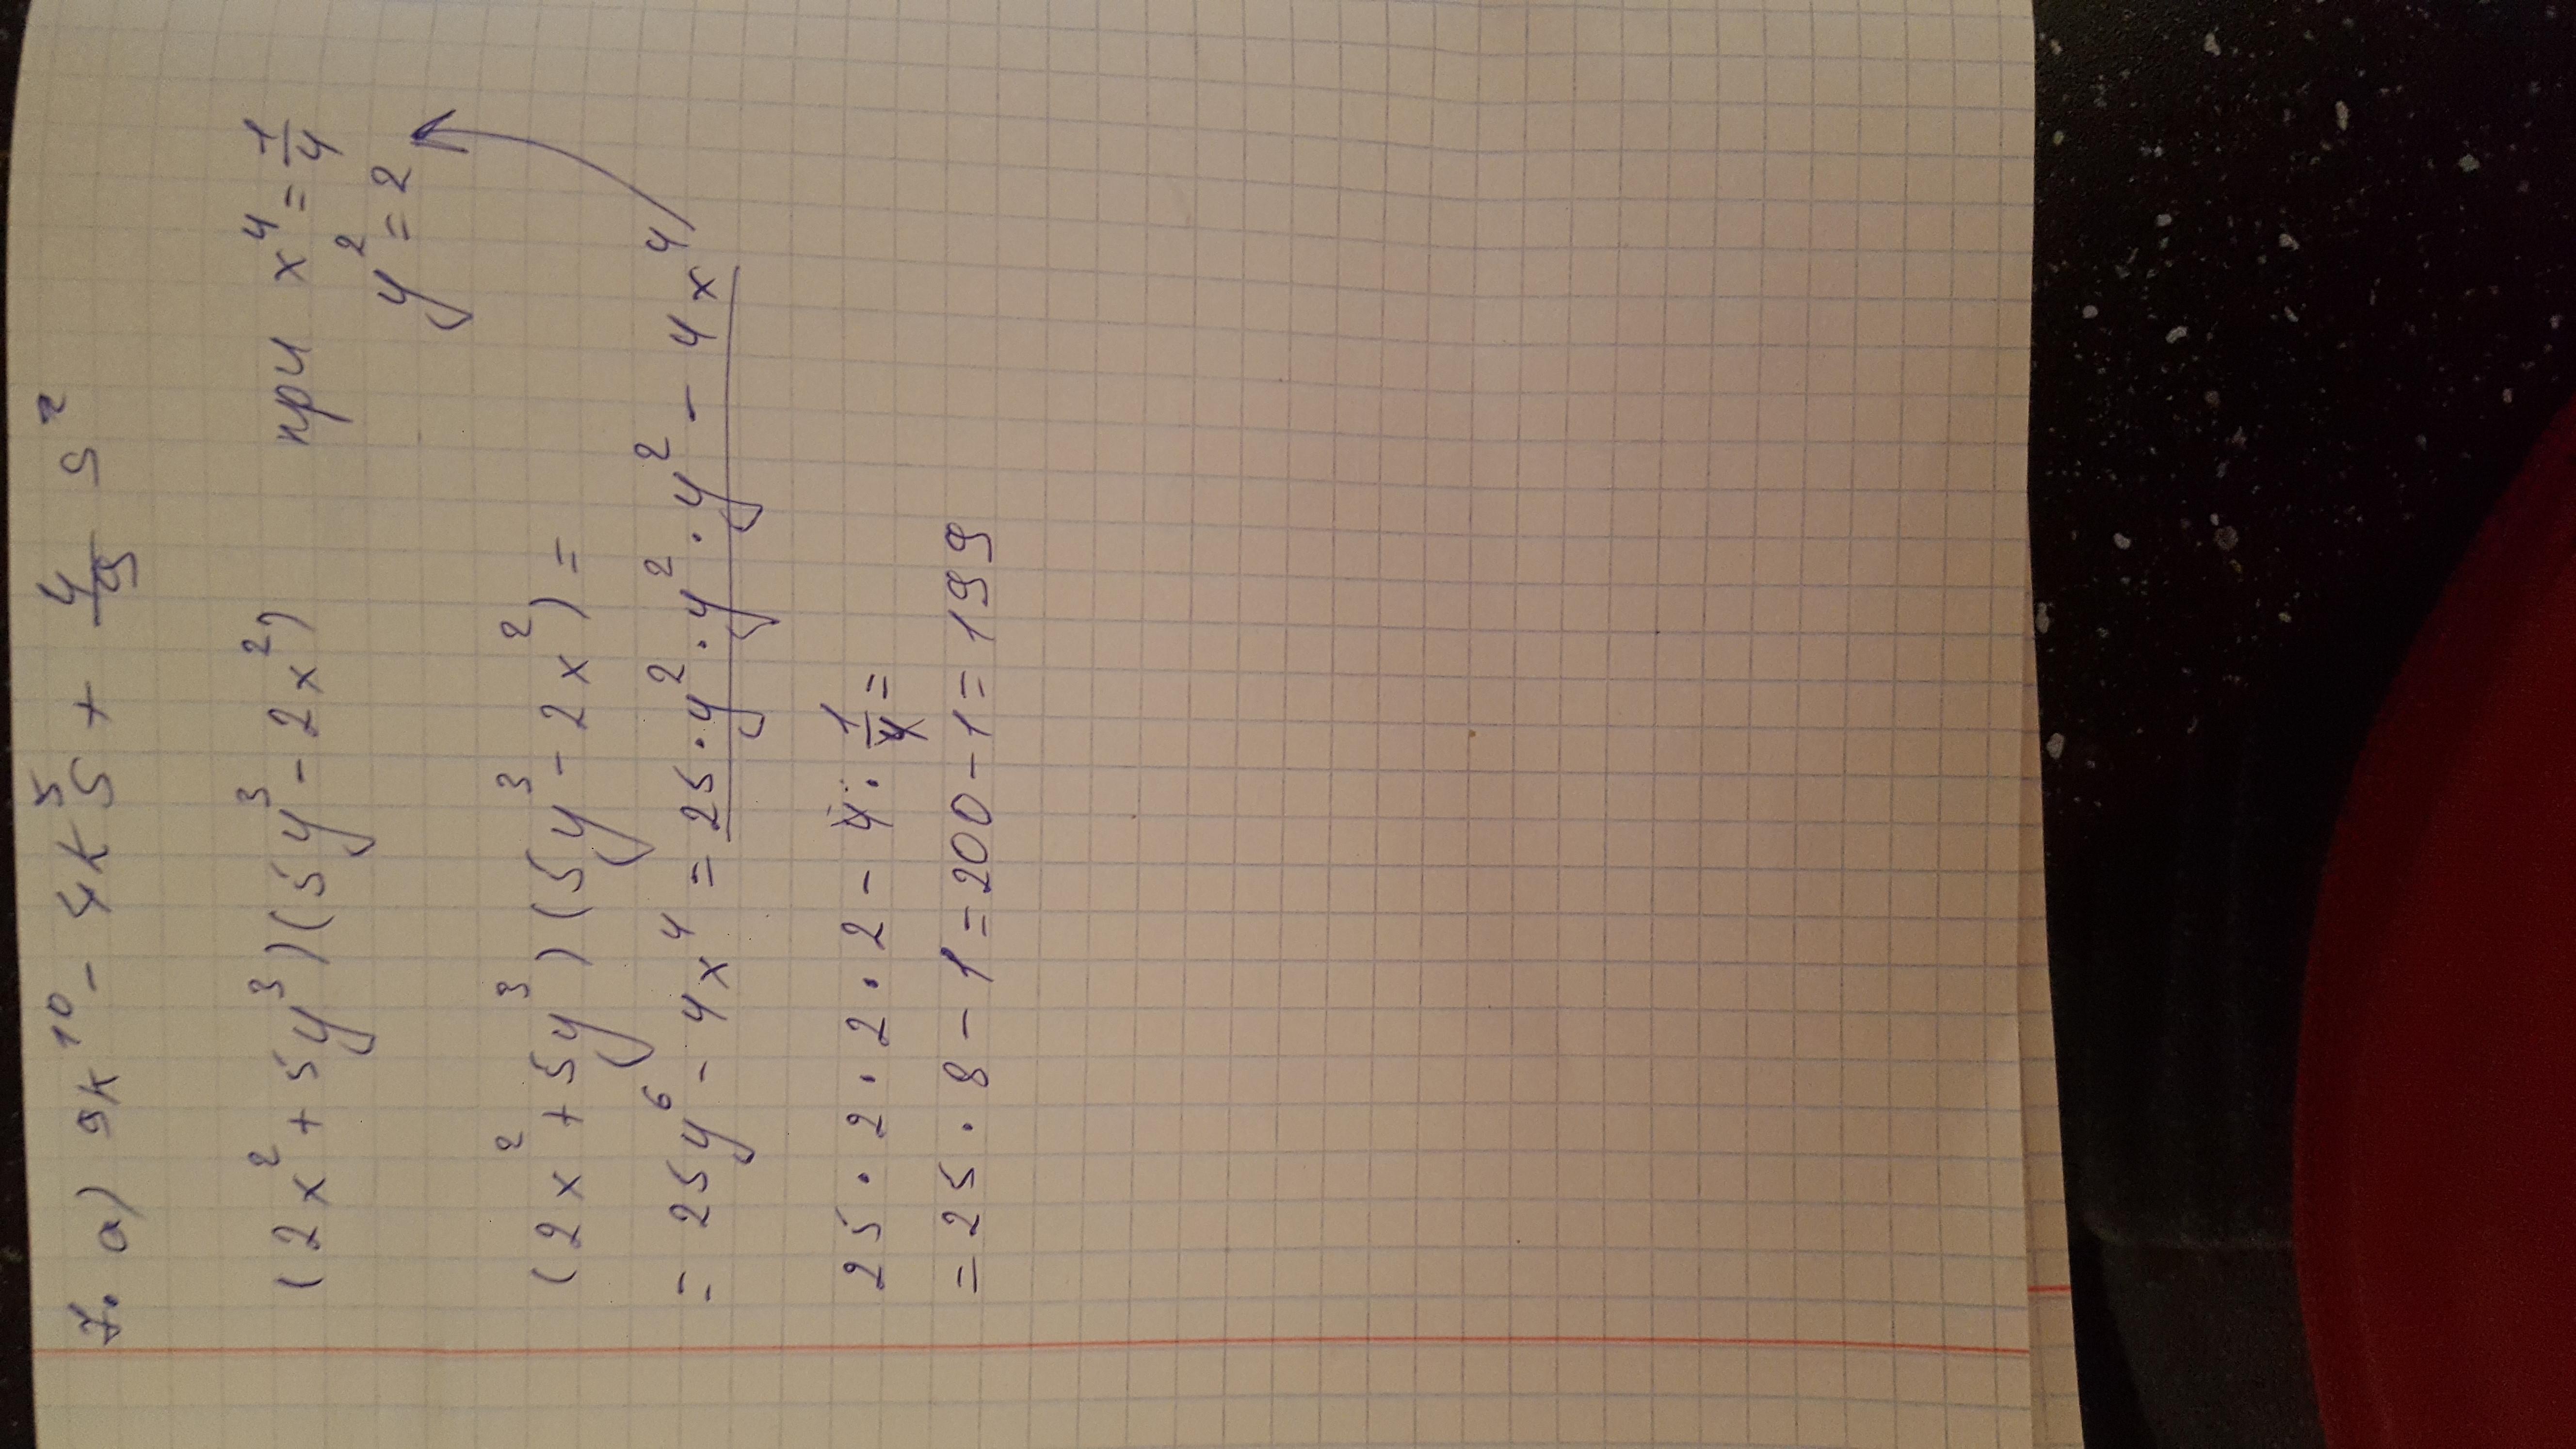 7. а) 9k¹⁰ - 4k⁵s + 4/9 s²
(2x² + 5y³)(5y³ - 2x²) при x⁴ = 1/4
y² = 2
(2x² + 5y³)(5y³ - 2x²) =
= 25y⁶ - 4x⁴ = 25 · y² · y² · y² - 4x⁴
25 · 2 · 2 · 2 - 4 · 1/4 =
= 25 · 8 - 1 = 200 - 1 = 199